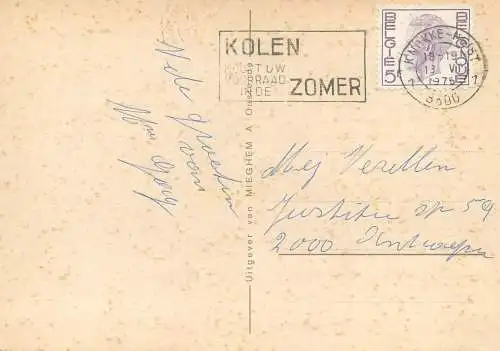 KOLEN
KOOPT UW
VOORRAAD
IN DE
ZOMER
BELGIE 5
KNOKKE-HEIST
18-19
13 VII
1975
1
8300
Uitgever van MIEGHEM A Oostende
van
Mej Verellen
Justitie str 59
2000 Antwerpen